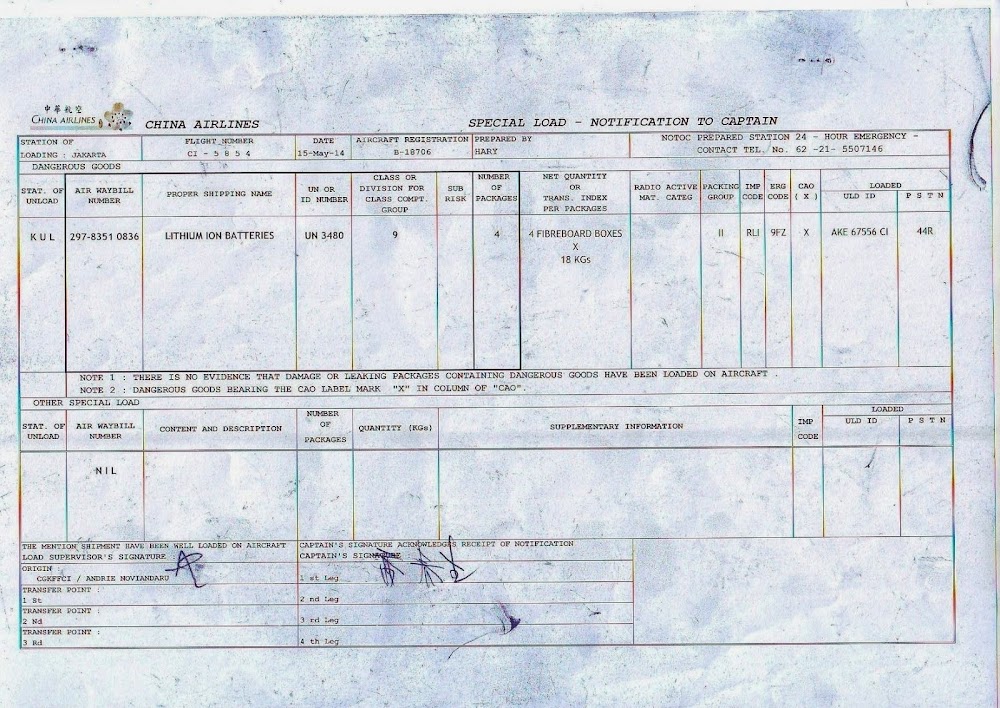 中華航空
CHINA AIRLINES
CHINA AIRLINES
SPECIAL LOAD - NOTIFICATION TO CAPTAIN
STATION OF
LOADING : JAKARTA
FLIGHT NUMBER
CI - 5 8 5 4
DATE
15-May-14
AIRCRAFT REGISTRATION
B-18706
PREPARED BY
HARY
NOTOC PREPARED STATION 24 - HOUR EMERGENCY -
CONTACT TEL. No. 62 -21- 5507146
DANGEROUS GOODS
STAT. OF
UNLOAD
AIR WAYBILL
NUMBER
PROPER SHIPPING NAME
UN OR
ID NUMBER
CLASS OR
DIVISION FOR
CLASS COMPT.
GROUP
SUB
RISK
NUMBER
OF
PACKAGES
NET QUANTITY
OR
TRANS. INDEX
PER PACKAGES
RADIO ACTIVE
MAT. CATEG
PACKING
GROUP
IMP
CODE
ERG
CODE
CAO
( X )
LOADED
ULD ID
P S T N
K U L
297-8351 0836
LITHIUM ION BATTERIES
UN 3480
9
4
4 FIBREBOARD BOXES
X
18 KGs
II
RLI
9FZ
X
AKE 67556 CI
44R
NOTE 1 : THERE IS NO EVIDENCE THAT DAMAGE OR LEAKING PACKAGES CONTAINING DANGEROUS GOODS HAVE BEEN LOADED ON AIRCRAFT .
NOTE 2 : DANGEROUS GOODS BEARING THE CAO LABEL MARK "X" IN COLUMN OF "CAO".
OTHER SPECIAL LOAD
STAT. OF
UNLOAD
AIR WAYBILL
NUMBER
CONTENT AND DESCRIPTION
NUMBER
OF
PACKAGES
QUANTITY (KGs)
SUPPLEMENTARY INFORMATION
IMP
CODE
LOADED
ULD ID
P S T N
N I L
THE MENTION SHIPMENT HAVE BEEN WELL LOADED ON AIRCRAFT
LOAD SUPERVISOR'S SIGNATURE
CAPTAIN'S SIGNATURE ACKNOWLEDGES RECEIPT OF NOTIFICATION
CAPTAIN'S SIGNATURE
ORIGIN
CGKFFCI / ANDRIE NOVIANDARU
1 st Leg
TRANSFER POINT :
1 St
2 nd Leg
TRANSFER POINT :
2 Nd
3 rd Leg
TRANSFER POINT :
3 Rd
4 th Leg